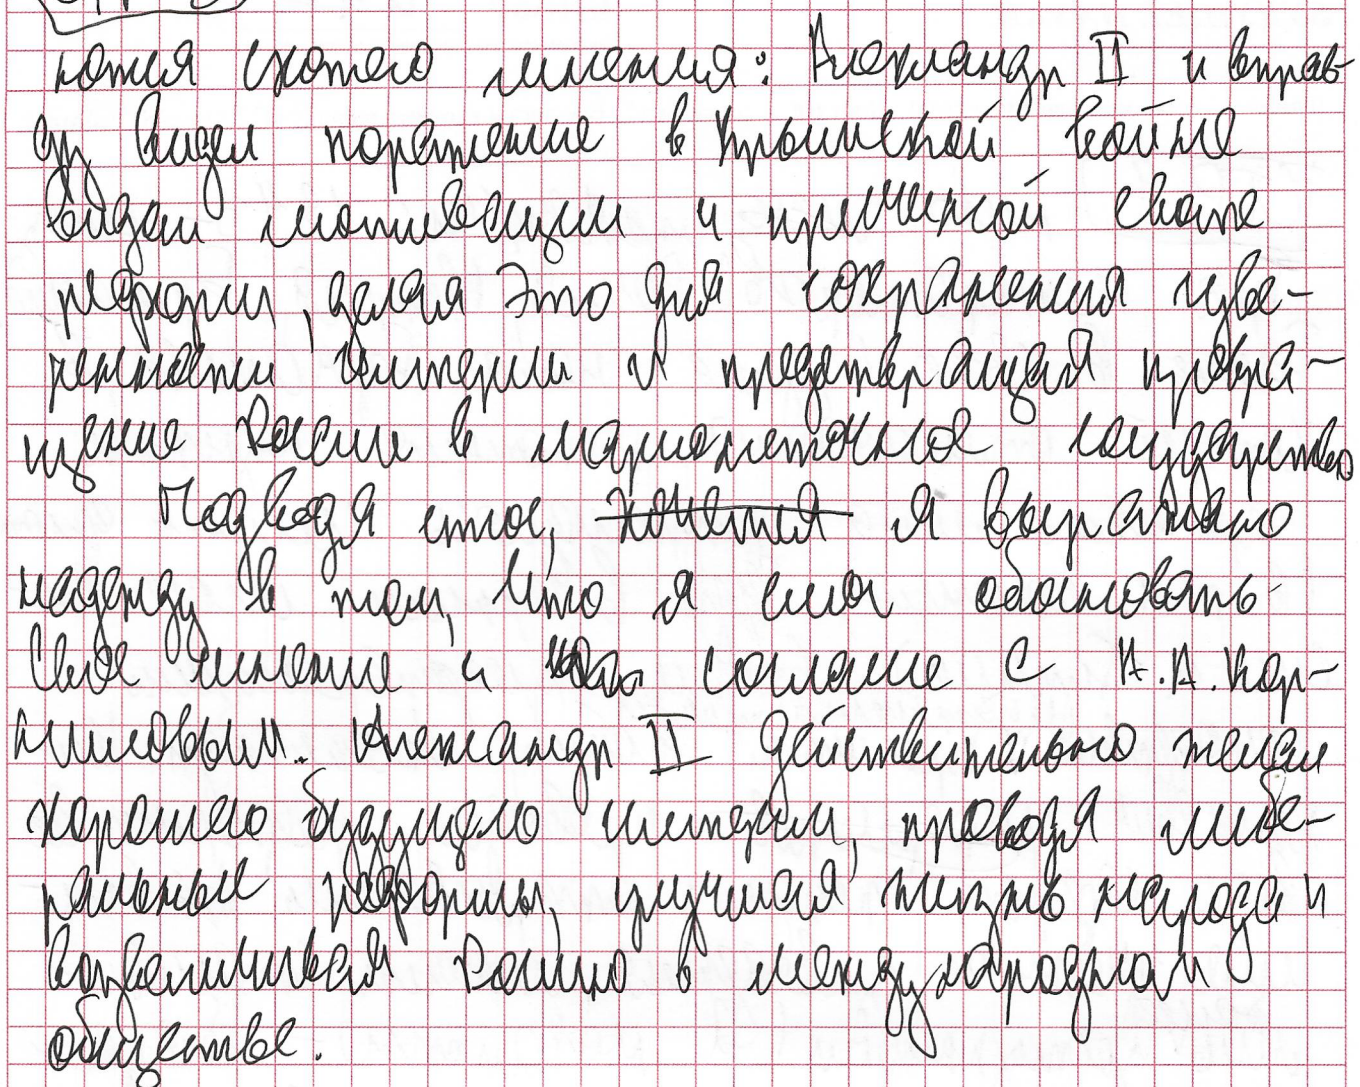 ются схожего мнения: Александр II и вправ-
ду видел поражение в Крымской войне
видел мотивацией и причиной своих
реформ, делая это для сохранения
империи и предотвращая превра-
щение России в марионеточное государство
Подводя итог, хочется я выражаю
надежду в том, что я смог обосновать
своё мнение и согласие с А.А. Кор-
ниловым. Александр II действительно желал
хорошего будущего империи, проводя либе-
ральные реформы, улучшая жизнь народа и
возвеличивая Россию в международном
обществе.